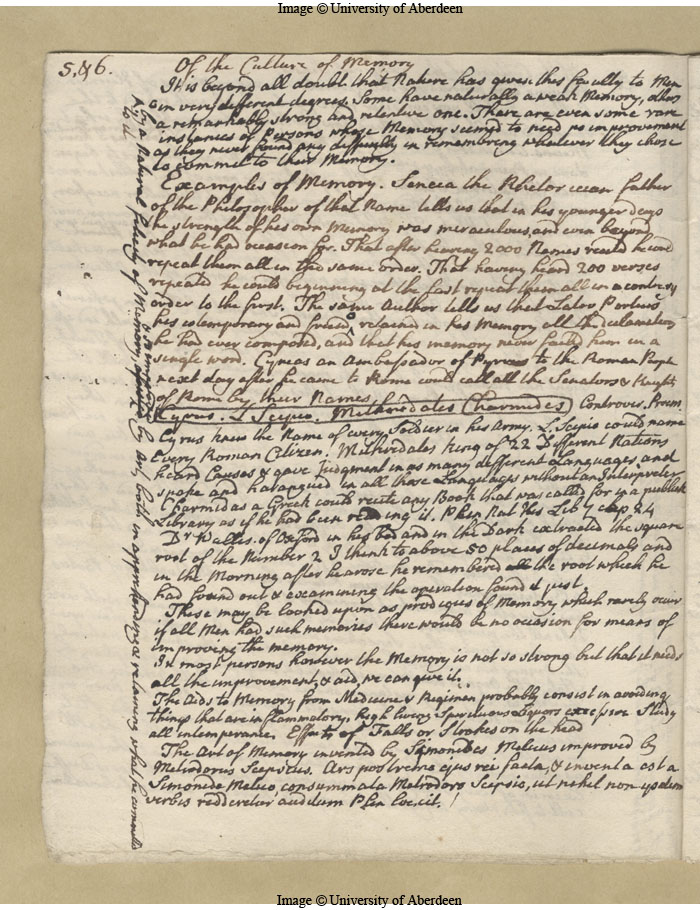 Image © University of Aberdeen
5. & 6.
Of the Culture of Memory
It is beyond all doubt that Nature has given this faculty to Men
in very different degrees. Some have naturally a weak Memory, others
a remarkably strong and retentive one. There are even some rare
instances of Persons whose Memory seemed to need no improvement
as they never found any difficulty in remembring whatever they chose
to commit to their Memory.
Examples of Memory. Seneca the Rhetorician father
of the Philosopher of that Name tells us that in his younger days
the strength of his own Memory was miraculous, and even beyond
what he had occasion for. That after hearing 2000 Names recited he could
repeat them all in the same order. That having heard 200 verses
repeated he could beginning at the last repeat them all in a contrary
order to the first. The same Author tells us that Latro Portius
his cotemporary and friend, retained in his Memory all the declamations
he had ever composed, and that his memory never faild him in a
single word. Cyneas an Ambassador of Pyrrus to the Roman People
next day after he came to Rome could call all the Senators & Knights
of Rome by their Names. Controvers. Proem.
Cyrus. L Scipio. Mithridates Charmides
Cyrus knew the Name of every Soldier in his Army. L. Scipio could name
Every Roman Citizen. Mithridates King of 22 Different Nations
heard Causes & gave Judgment in as many different Languages and
spoke and harangued in all those Languages without an Interpreter
Charmidas a Greek could recite any Book that was called for in a publick
Library as if he had been reading it. Plin Nat His Lib 7 cap 24
Dr Wallis of Oxford in his bed and in the Dark extracted the square
root of the Number 2 I think to above 50 places of decimals and
in the Morning after he arose he remembered the root which he
had found out & examining the operation found it just.
These may be looked upon as prodigies of Memory which rarely occur
if all Men had such memories there would be no occasion for means of
improving the memory.
In most persons however the Memory is not so strong but that it needs
all the improvement, & aid, we can give it.
The Aids to Memory from Medicine & Regimen probably consist in avoiding
things that are inflammatory. high living Spirituous Liquors excessive Study
all intemperance. Effects of Falls or Strokes on the head
The Art of Memory invented by Simonides Melicus improved by
Metrodorus Scepsius. Ars postremo ejus rei facta, & inventa est a
Simonide Melico, consummata Metrodoro Scepsio, ut nihil non iisdem
verbis redderetur auditum Plin loc. cit.
by a Natural felicity of Memory, by Art, both in apprehending & retaining what he commits
to it
Image © University of Aberdeen